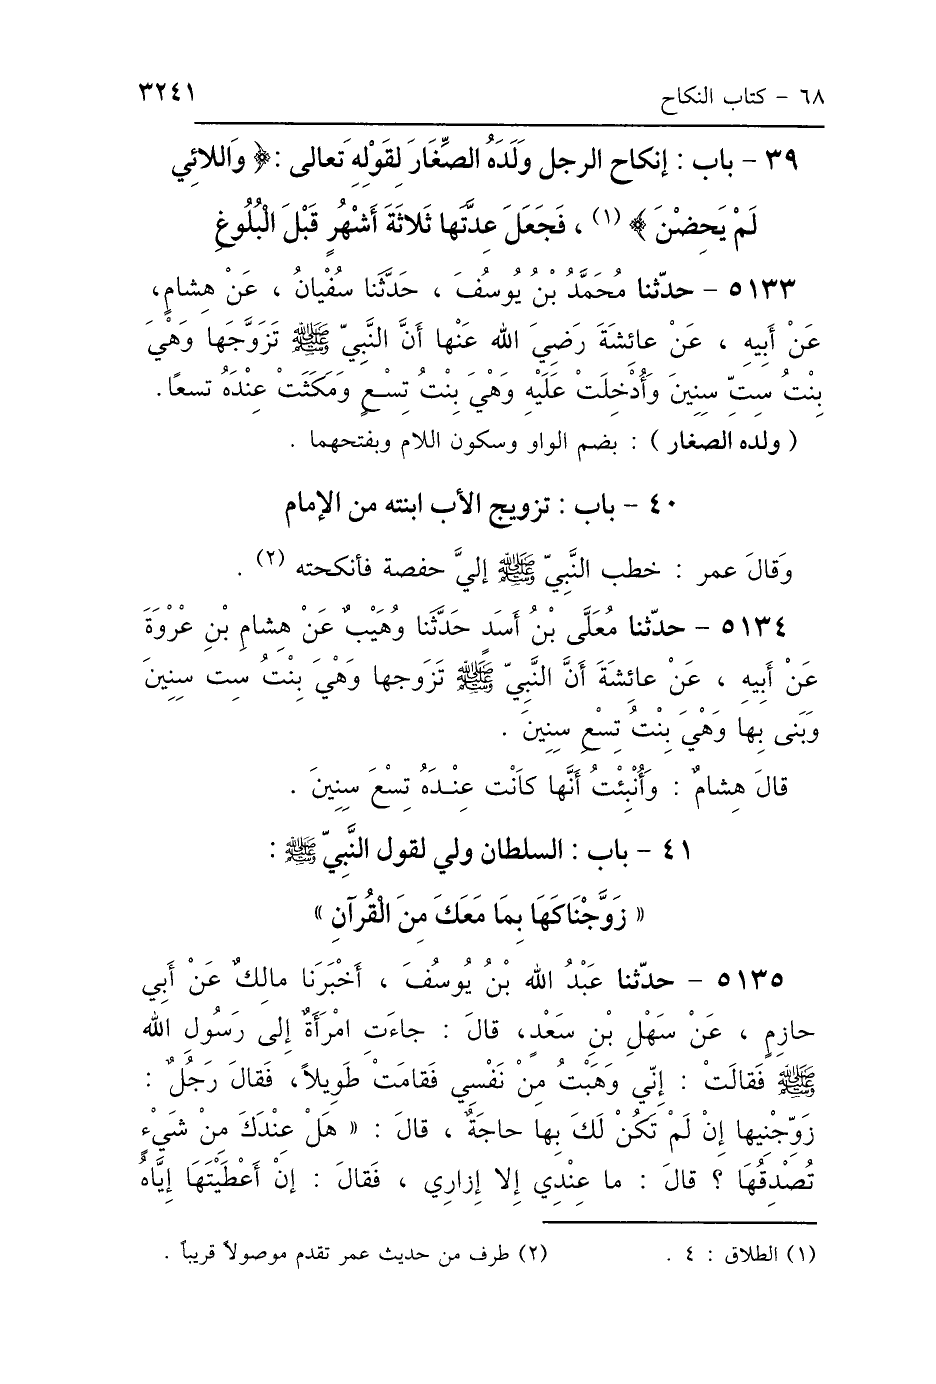 ٦٨ - كتاب النكاح ٣٢٤١
٣٩ - باب : إنكاح الرجل وَلَدَهُ الصِّغَارَ لقَوْلِهِ تَعالى : ﴿ وَاللائِي
لَمْ يَحِضْنَ ﴾ (١) ، فَجَعَلَ عِدَّتَها ثَلاثَةَ أَشْهُرٍ قَبْلَ الْبُلُوغِ
٥١٣٣ - حدّثنا مُحَمَّدُ بْنُ يُوسُفَ ، حَدَّثَنا سُفْيانُ ، عَنْ هِشامٍ،
عَنْ أَبِيهِ ، عَنْ عائِشَةَ رَضِيَ الله عَنْها أَنَّ النَّبِيّ ﷺ تَزَوَّجَها وَهْيَ
بِنْتُ سِتّ سِنِينَ وَأُدْخِلَتْ عَلَيْهِ وَهْيَ بِنْتُ تِسْعٍ وَمَكَثَتْ عِنْدَهُ تسعًا.
( ولده الصغار ) : بضم الواو وسكون اللام وبفتحهما .
٤٠ - باب : تزويج الأب ابنته من الإمام
وَقالَ عمر : خطب النَّبِيّ ﷺ إليَّ حفصة فأنكحته (٢) .
٥١٣٤ - حدّثنا مُعَلَّى بْنُ أَسَدٍ حَدَّثَنا وُهَيْبٌ عَنْ هِشامِ بْنِ عْرْوَةَ
عَنْ أَبِيهِ ، عَنْ عائِشَةَ أَنَّ النَّبِيّ ﷺ تَزَوجها وَهْيَ بِنْتُ سِت سِنِينَ
وَبَنَى بِها وَهْيَ بِنْتُ تِسْعِ سِنِينَ .
قالَ هِشامٌ : وَأُنْبِئْتُ أَنَّها كانَتْ عِنْدَهُ تِسْعَ سِنِينَ .
٤١ - باب : السلطان ولي لقول النَّبِيّ ﷺ :
« زَوَّجْنَاكَهَا بِمَا مَعَكَ مِنَ الْقُرآنِ »
٥١٣٥ - حدّثنا عَبْدُ الله بْنُ يُوسُفَ ، أَخْبَرَنَا مالكٌ عَنْ أَبي
حازِمٍ ، عَنْ سَهْلِ بْنِ سَعْدٍ، قالَ : جاءَتِ امْرَأَةٌ إِلى رَسُولِ الله
ﷺ فَقالَتْ : إِنّي وَهَبْتُ مِنْ نَفْسِي فَقامَتْ طَوِيلاً، فَقالَ رَجُلٌ :
زَوّجْنِيها إِنْ لَمْ تَكُنْ لَكَ بِها حاجَةٌ ، قالَ : « هَلْ عِنْدَكَ مِنْ شَيْءٍ
تُصْدِقُهَا ؟ قالَ : ما عِنْدِي إِلا إِزاري ، فَقالَ : إِنْ أَعْطَيْتَهَا إِيَّاهُ
(١) الطلاق : ٤ . (٢) طرف من حديث عمر تقدم موصولاً قريباً .